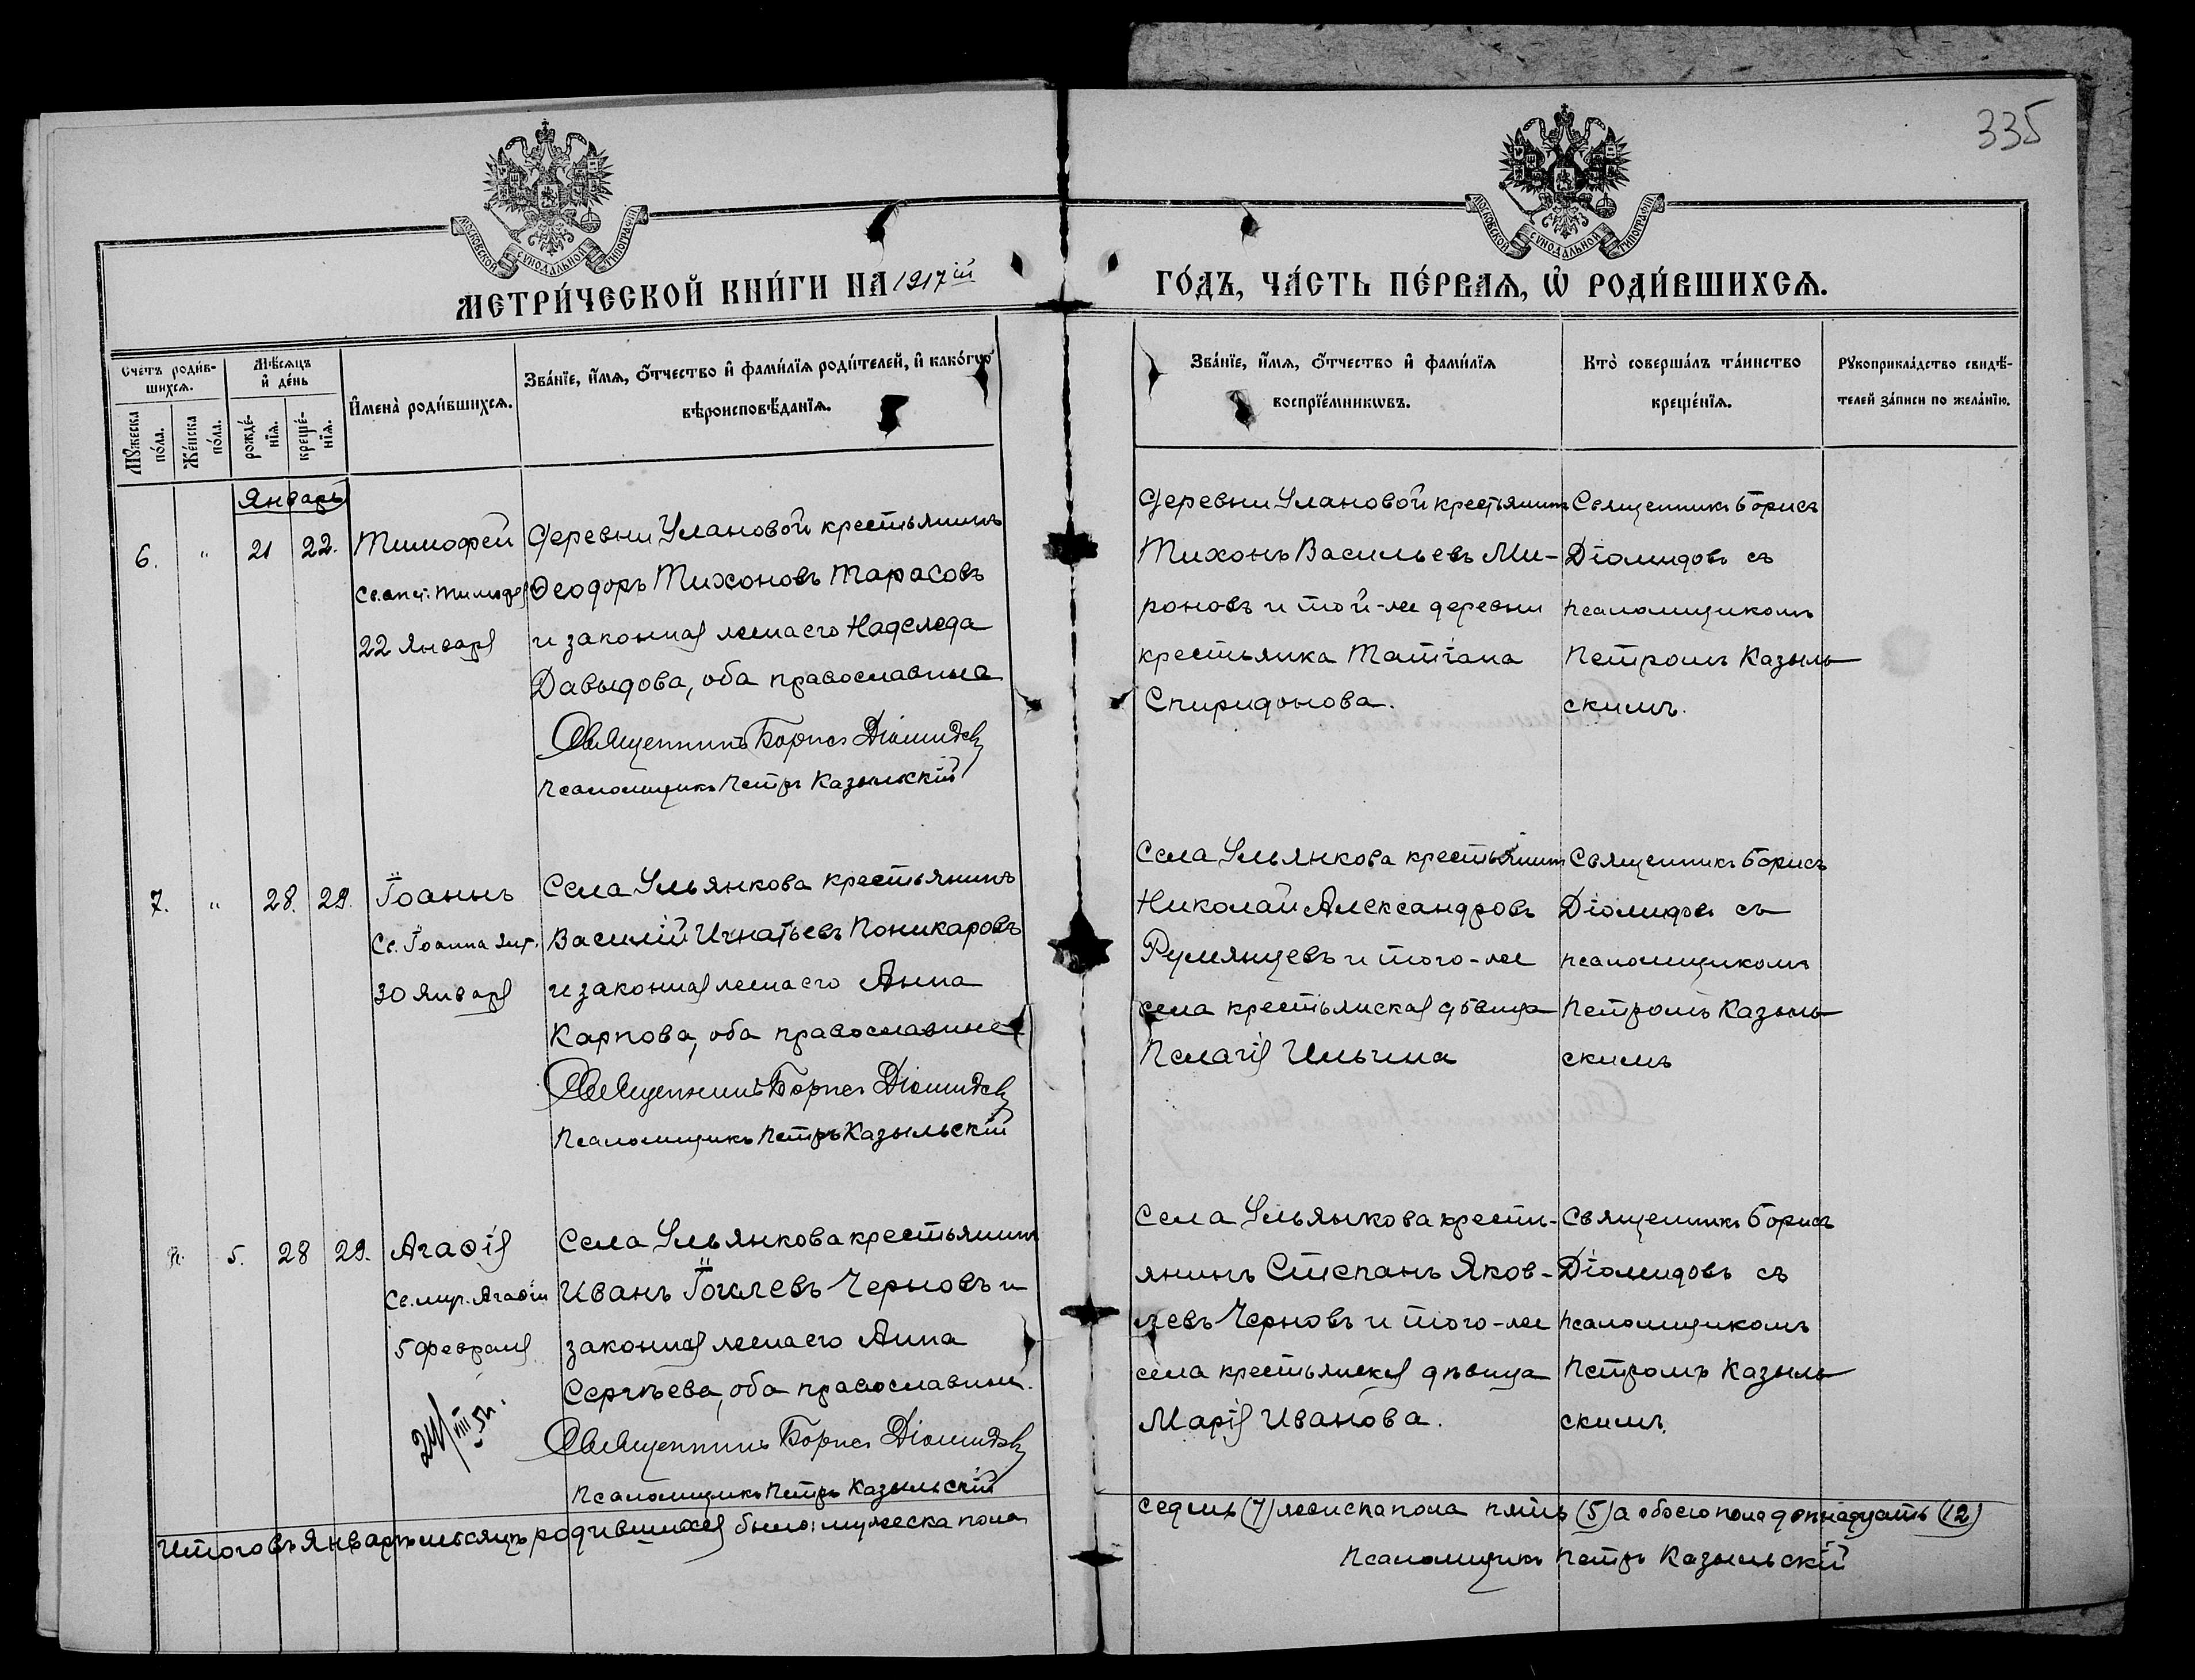 335
МОСКОВСКОЙ СѴНОДАЛЬНОЙ ТИПОГРАФІИ
МОСКОВСКОЙ СѴНОДАЛЬНОЙ ТИПОГРАФІИ
МЕТРИ́ЧЕСКОЙ КНИ́ГИ НА 1917ій
ГО́ДЪ, ЧА́СТЬ ПЕ́РВАЯ, Ѡ҆ РОДИ́ВШИХСЯ.
Сче́тъ роди́в-
шихся.
Мѣ́сяцъ
и҆ де́нь
Мꙋ́жеска
по́ла.
Же́нска
по́ла.
рожде́-
нїя.
креще́-
нїя.
И҆мена̀ роди́вшихся.
Зва́нїе, и҆́мя, о҆́тчество и҆ фами́лїя роди́телей, и҆ како́гѡ
вѣроисповѣ́данїя.
Зва́нїе, и҆́мя, о҆́тчество и҆ фами́лїя
воспрїе́мникѡвъ.
Кто̀ соверша́лъ та́инство
креще́нїя.
Рꙋкоприкла́дство свидѣ́-
телей за́писи по жела́нїю.
Январь
6. " 21 22.
Тимофей
Св. апст. Тимофея
22 Января
Деревни Улановой крестьянинъ
Ѳеодоръ Тихоновъ Тарасовъ
и законная жена его Надежда
Давыдова, оба православные
Священникъ Борисъ Діомидовъ
Псаломщикъ Петръ Казыльскій
Деревни Улановой крестьянинъ
Тихонъ Васильевъ Ми-
роновъ и той-же деревни
крестьянка Татіана
Спиридонова.
Священникъ Борисъ
Діомидовъ съ
псаломщикомъ
Петромъ Казыль-
скимъ.
7. " 28. 29.
Іоаннъ
Св. Іоанна Зит.
30 Января
Села Ульянкова крестьянинъ
Василій Игнатьевъ Поникаровъ
и законная жена его Анна
Карпова, оба православные
Священникъ Борисъ Діомидовъ
Псаломщикъ Петръ Казыльскій
Села Ульянкова крестьянинъ
Николай Александровъ
Румянцевъ и того-же
села крестьянская дѣвица
Пелагія Ильина
Священникъ Борисъ
Діомидовъ съ
псаломщикомъ
Петромъ Казыль-
скимъ
5. 28 29.
Агаѳія
Св. муч. Агаѳіи
5 Февраля
Села Ульянкова крестьянинъ
Иванъ Іовлевъ Черновъ и
законная жена его Анна
Сергѣева, оба православные.
Священникъ Борисъ Діомидовъ
Псаломщикъ Петръ Казыльскій
Села Ульянкова кресть-
янинъ Степанъ Яков-
левъ Черновъ и того-же
села крестьянская дѣвица
Марія Иванова.
Священникъ Борисъ
Діомидовъ съ
псаломщикомъ
Петромъ Казыль-
скимъ.
Итого въ Январѣ мѣсяцѣ родившихся было: мужеска пола
седмь (7) женска пола пять (5) а обоего пола двѣнадцать (12)
Псаломщикъ Петръ Казыльскій